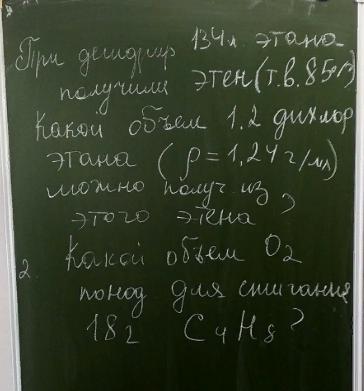 При дегидрир 134 л этана
получили этен (т.в. 85%)
Какой объем 1,2 дихлор
этана (ρ = 1,24 г/мл)
можно получ из
этого этена ?
2. Какой объем O₂
понад для сжигания
18 г C₄H₈ ?